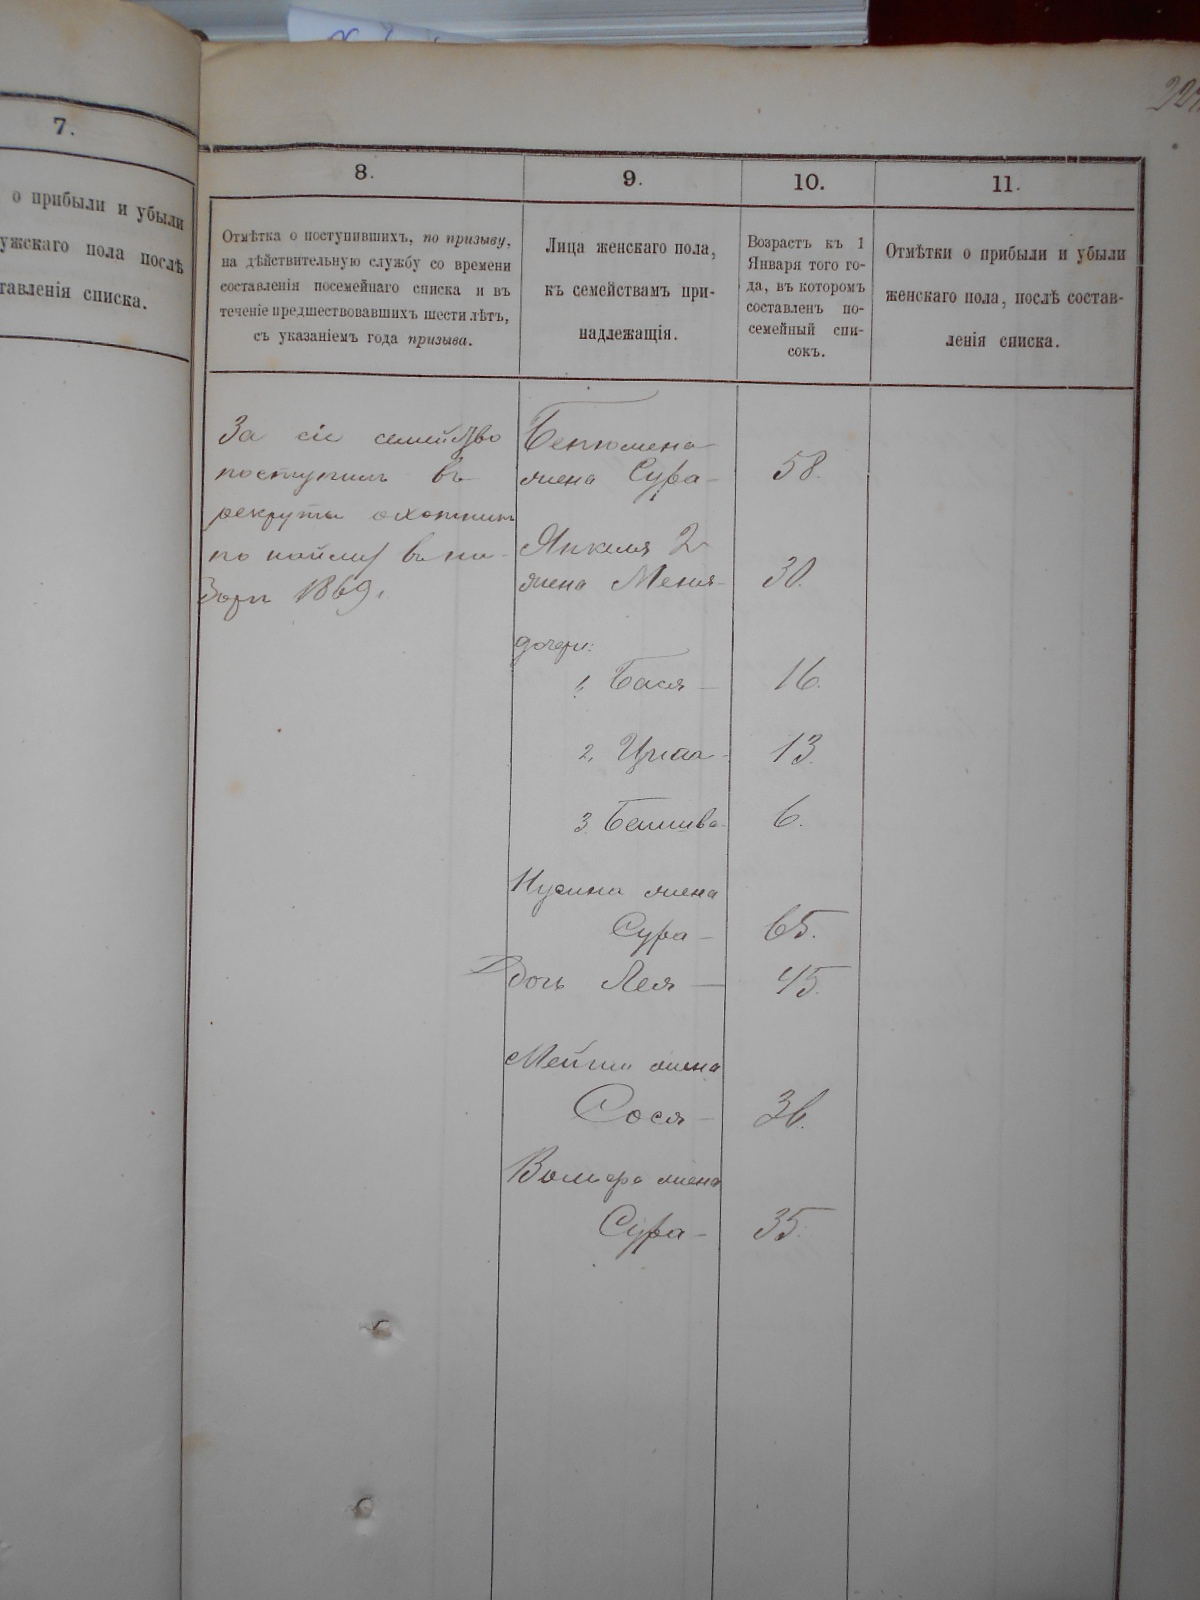 7.
о прибыли и убыли
ужскаго пола послѣ
тавленія списка.
8.
9.
10.
11.
Отмѣтка о поступившихъ, по призыву,
на дѣйствительную службу со времени
составленія посемейнаго списка и въ
теченіе предшествовавшихъ шести лѣтъ,
съ указаніемъ года призыва.
Лица женскаго пола,
къ семействамъ при-
надлежащія.
Возрастъ къ 1
Января того го-
да, въ которомъ
составленъ по-
семейный спи-
сокъ.
Отмѣтки о прибыли и убыли
женскаго пола, послѣ состав-
ленія списка.
За сіе семейство
поступилъ въ
рекруты охотникъ
по найму въ
1869.
жена Сура 58.
Янкеля 2
жена Меня 30.
дочери:
1, Бася 16.
2, 13.
3 6.
Нусина жена
Сура 65.
дочь Лея 45.
жена
Сося 36.
жена
Сура 35.